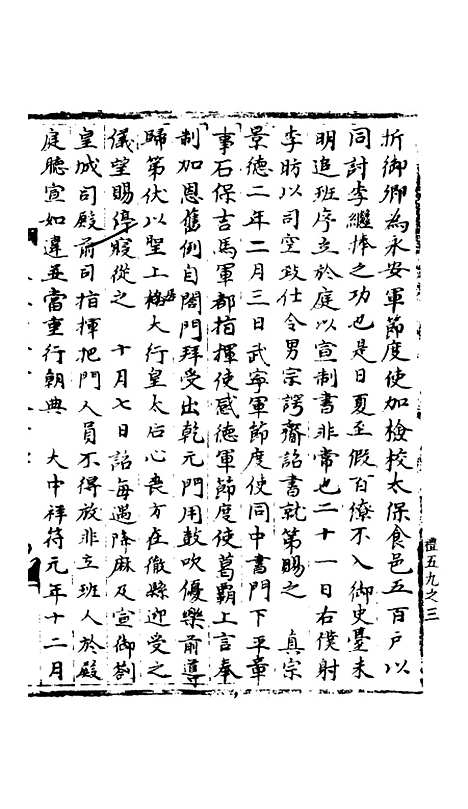 折御卿為永安軍節度使加檢校太保食邑五百戶以
同討李繼捧之功也是日夏至假百僚不入御史臺未
明追班序立於庭以宣制書非常也二十一日右僕射
李昉以司空致仕令男宗諤齎詔書就第賜之　真宗
景德二年二月三日武寧軍節度使同中書門下平章
事石保吉馬軍都指揮使感德軍節度使葛霸上言奉
制加恩舊例自閤門拜受出乾元門用鼓吹優樂前導
歸第伏以聖上恪居大行皇太后心喪方在徹縣迎受之
儀望賜停寢從之　十月七日詔每遇降麻及宣御劄
皇城司殿前司指揮把門人員不得放非立班人於殿
庭聽宣如違並當重行朝典　大中祥符元年十二月
禮五九之三